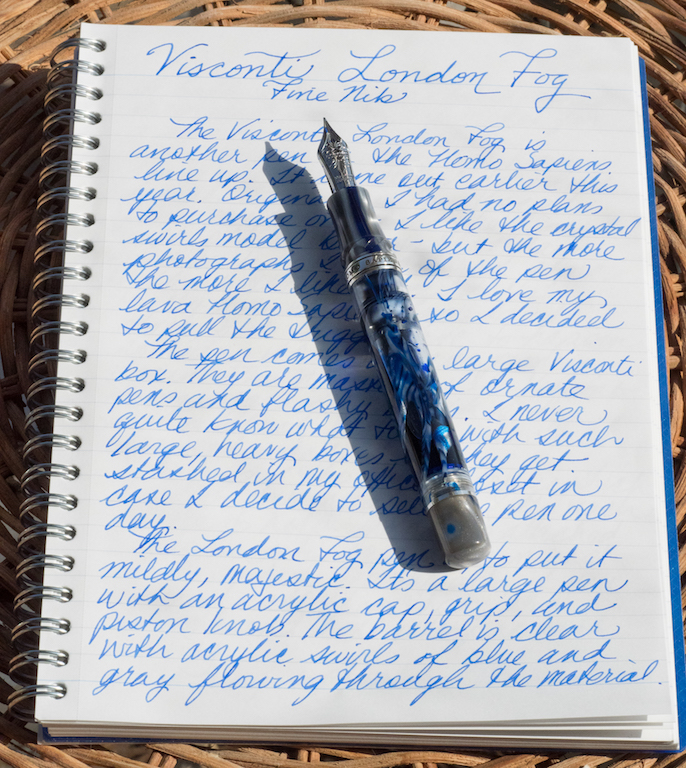 Visconti London Fog
Fine Nib
The Visconti London Fog is
another pen the Homo Sapiens
line up. It out earlier this
year. I had no plans
to purchase I like the crystal
swirls model - but the more
photographs I of the pen
the more I I love my
lava Homo so I decided
to pull the
The pen comes large Visconti
box. They are ornate
pens and flashy I never
quite know what with such
large, heavy boxes they get
stashed in my in
case I decide to pen one
day.
The London Fog pen to put it
mildly, majestic. Its a large pen
with an acrylic cap, grip, and
piston knob. The barrel is clear
with acrylic swirls of blue and
gray flowing through the material.